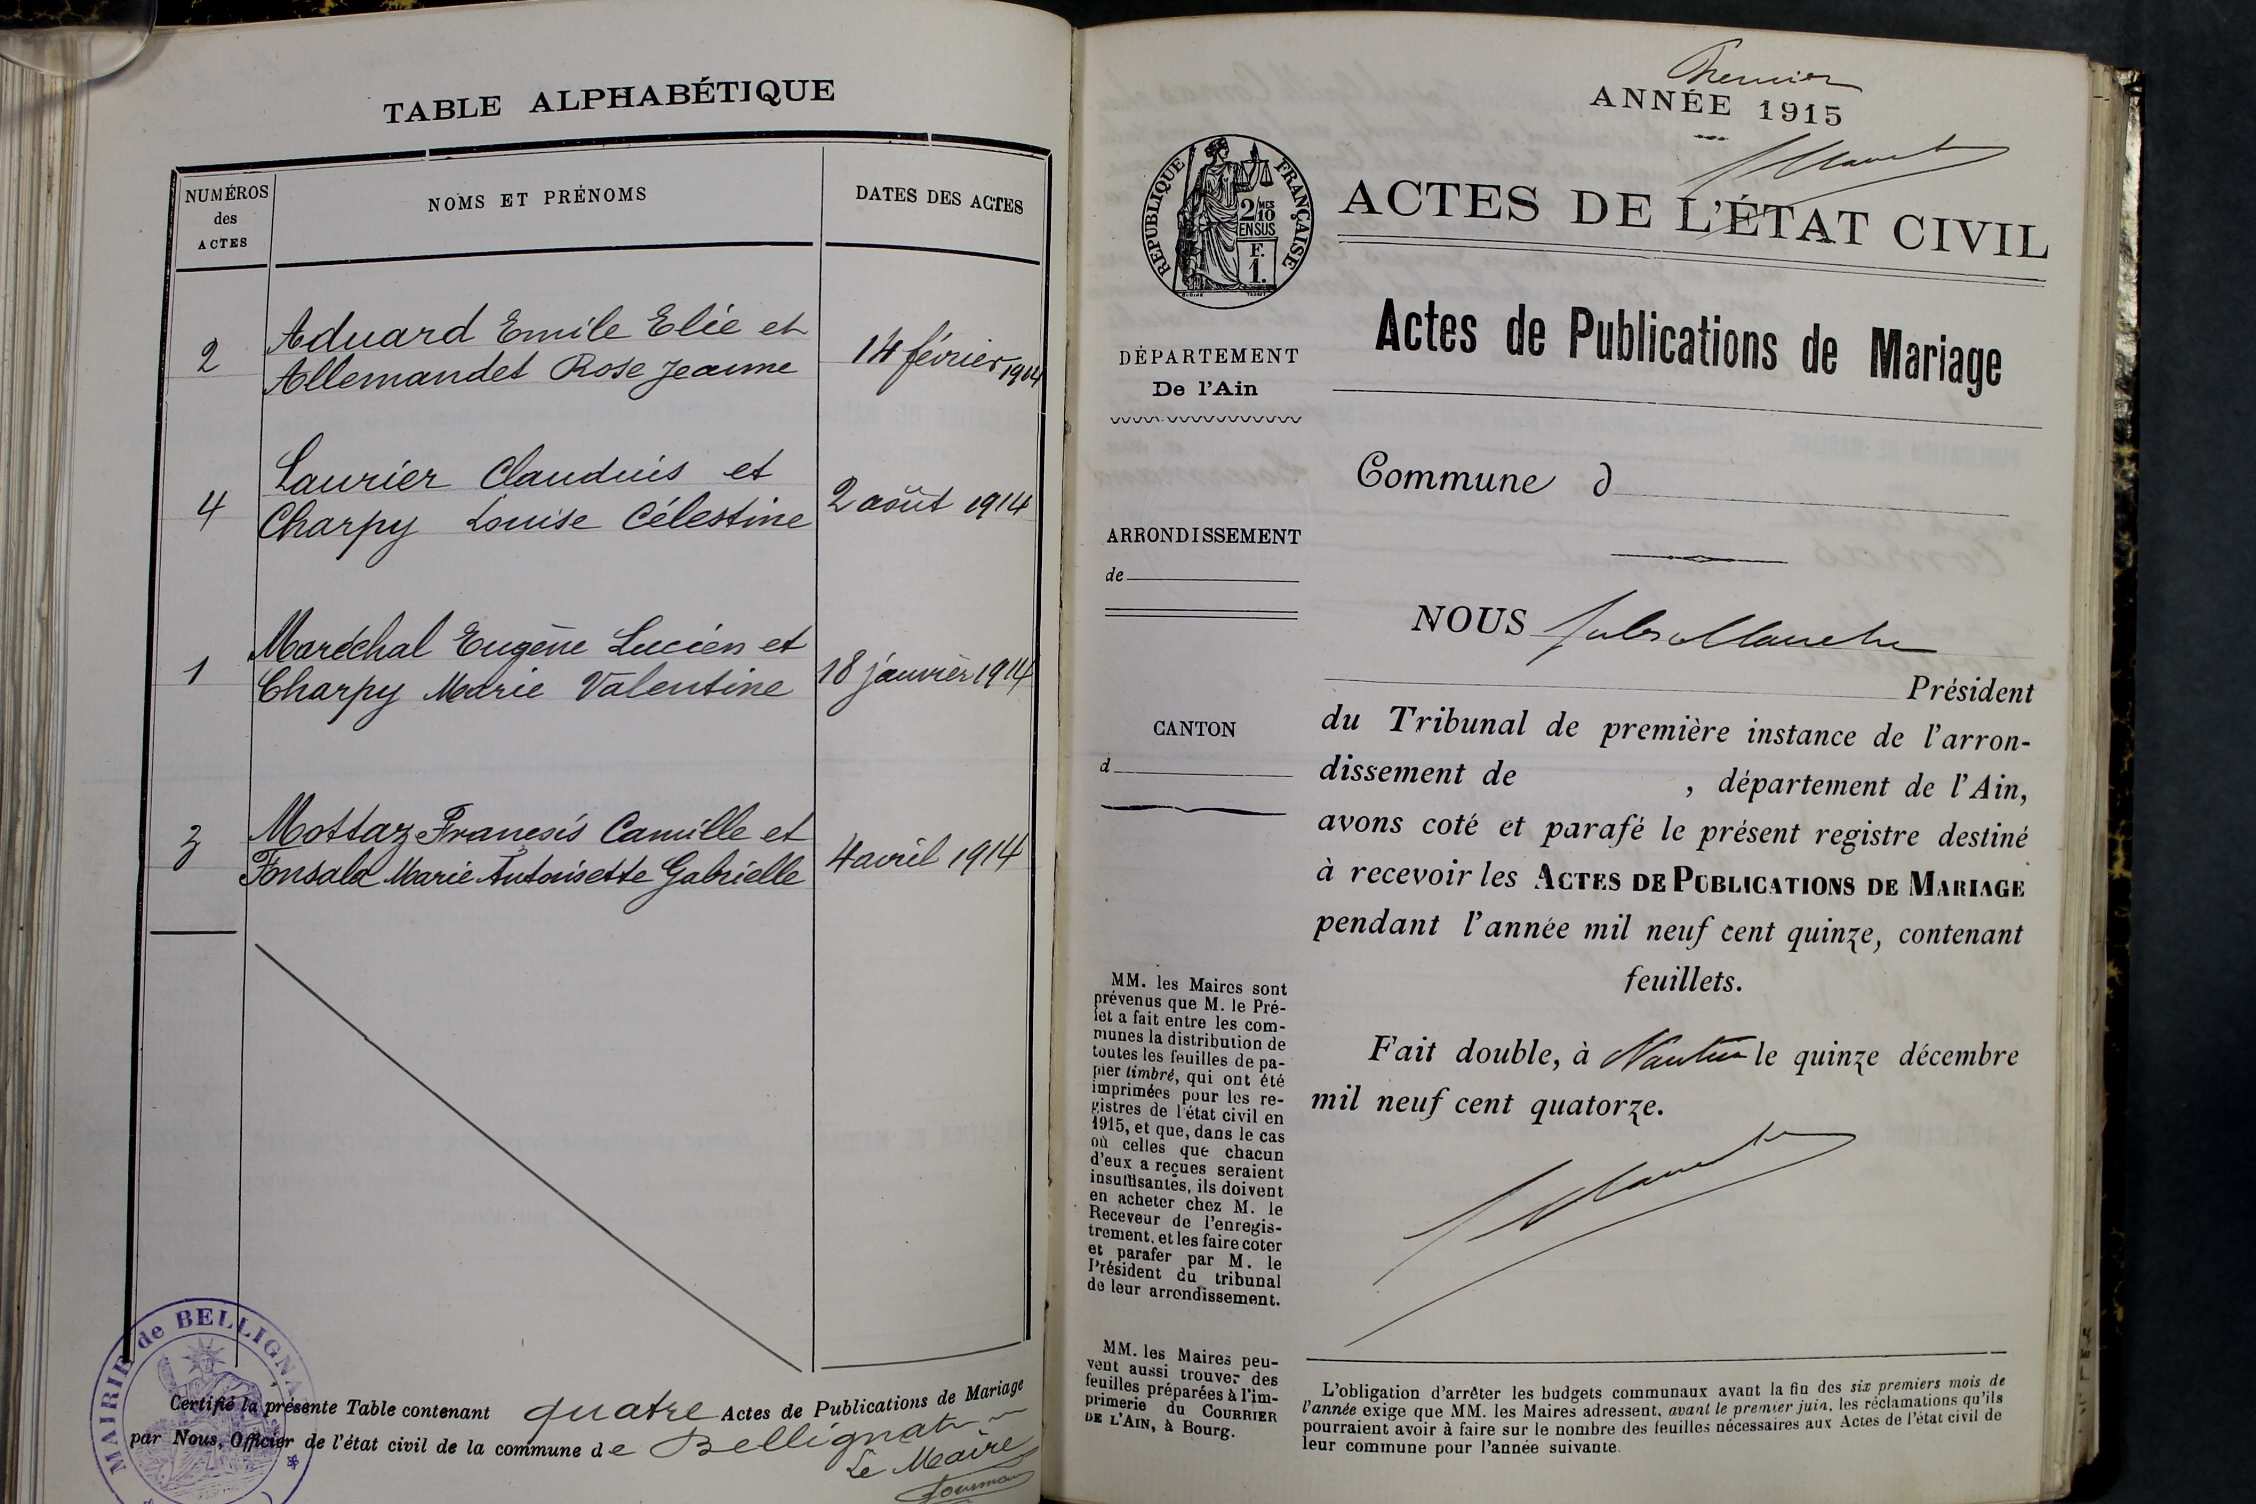 TABLE ALPHABÉTIQUE
NUMÉROS
des
ACTES
NOMS ET PRÉNOMS
DATES DES ACTES
2
Aduard Emile Elie et
Allemandet Rose Jeanne
14 février 1914
4
Laurier Claudius et
Charpy Louise Célestine
2 août 1914
1
Maréchal Eugène Lucien et
Charpy Marie Valentine
18 janvier 1914
3
Mottaz Francis Camille et
Fonsala Marie Antoinette Gabrielle
4 avril 1914
MAIRIE de BELLIGNA
Certifié la présente Table contenant quatre Actes de Publications de Mariage
par Nous, Officier de l'état civil de la commune de Bellignat
Le Maire
Premier
ANNÉE 1915
RÉPUBLIQUE FRANÇAISE
2/10 MES
EN SUS
F.
1.
ACTES DE L'ÉTAT CIVIL
Actes de Publications de Mariage
DÉPARTEMENT
De l'Ain
Commune d
ARRONDISSEMENT
de
NOUS Jules
Président
CANTON
d
du Tribunal de première instance de l'arron-
dissement de , département de l'Ain,
avons coté et parafé le présent registre destiné
à recevoir les ACTES DE PUBLICATIONS DE MARIAGE
pendant l'année mil neuf cent quinze, contenant
feuillets.
Fait double, à Nantua le quinze décembre
mil neuf cent quatorze.
MM. les Maires sont
prévenus que M. le Pré-
fet a fait entre les com-
munes la distribution de
toutes les feuilles de pa-
pier timbré, qui ont été
imprimées pour les re-
gistres de l'état civil en
1915, et que, dans le cas
où celles que chacun
d'eux a reçues seraient
insuffisantes, ils doivent
en acheter chez M. le
Receveur de l'enregis-
trement, et les faire coter
et parafer par M. le
Président du tribunal
de leur arrondissement.
MM. les Maires peu-
vent aussi trouver des
feuilles préparées à l'im-
primerie du COURRIER
DE L'AIN, à Bourg.
L'obligation d'arrêter les budgets communaux avant la fin des six premiers mois de
l'année exige que MM. les Maires adressent, avant le premier juin, les réclamations qu'ils
pourraient avoir à faire sur le nombre des feuilles nécessaires aux Actes de l'état civil de
leur commune pour l'année suivante.